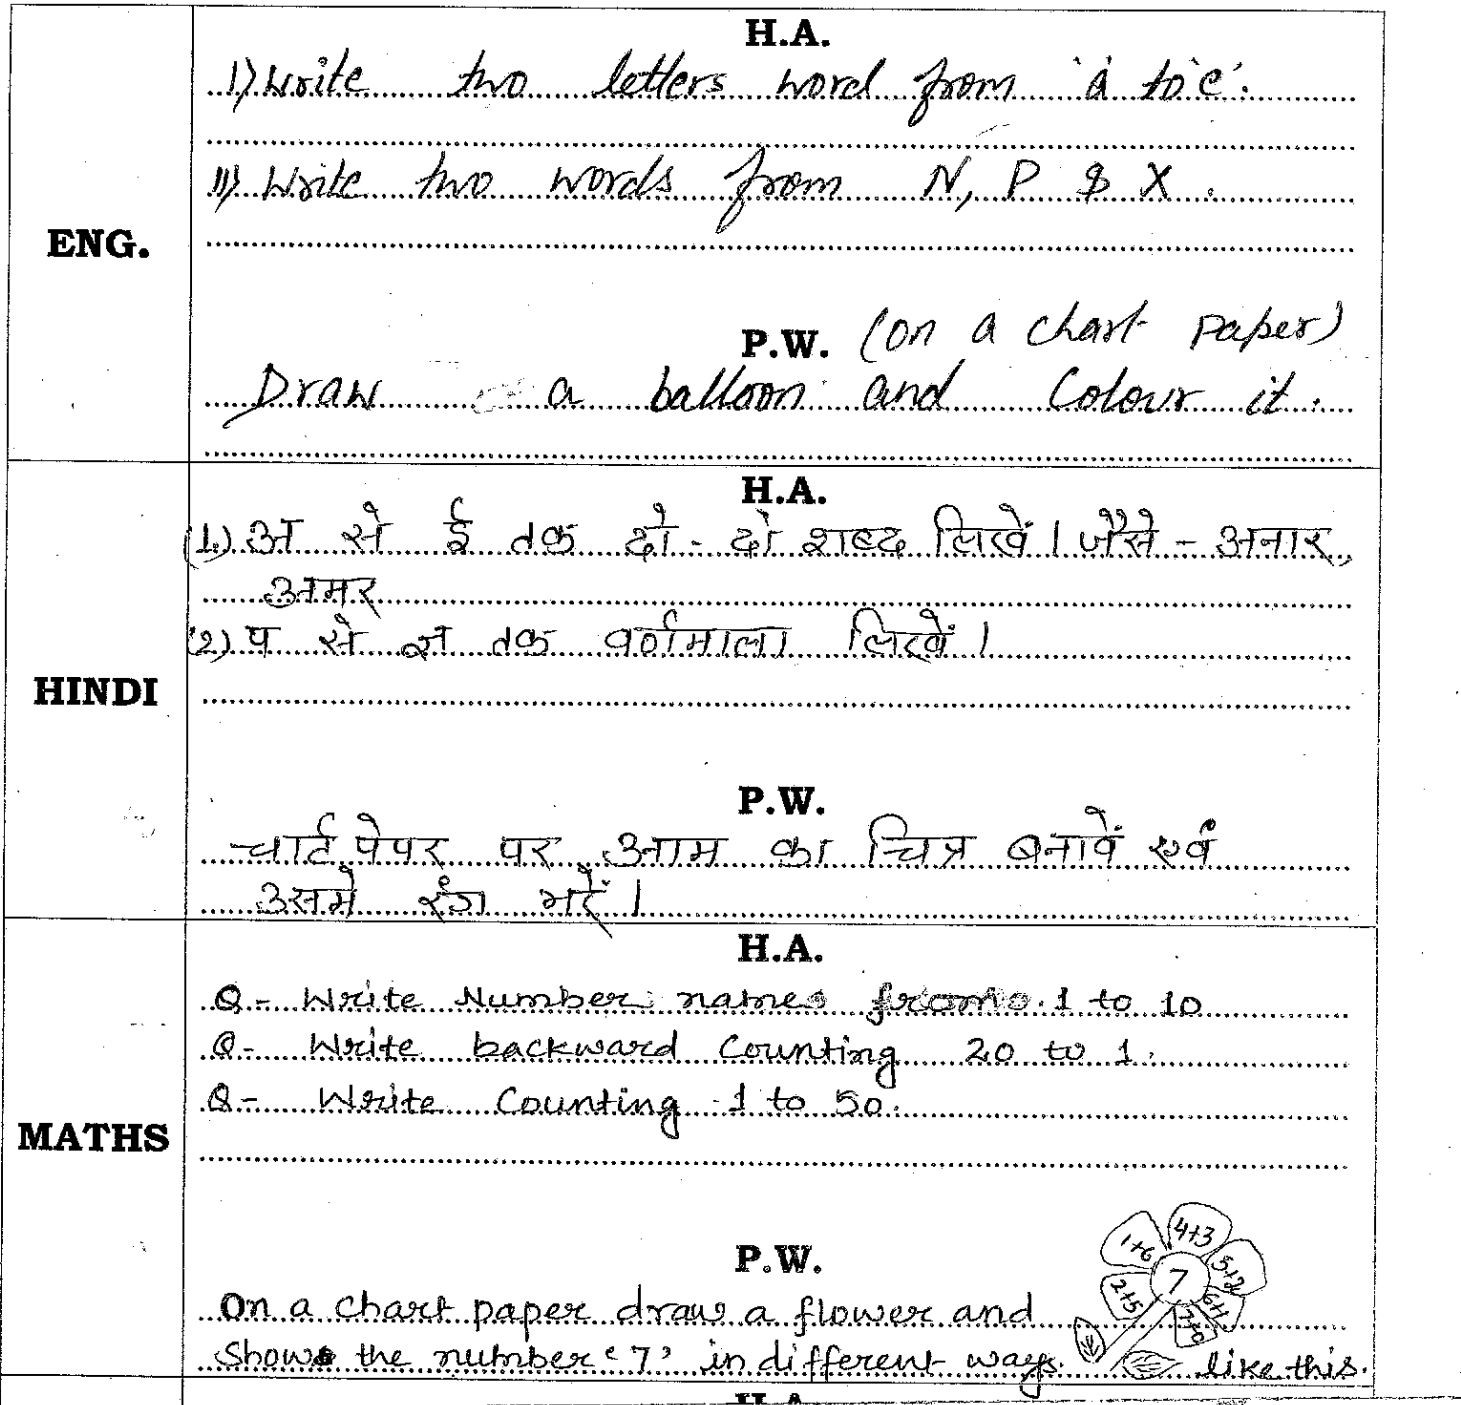 H.A.
I) Write two letters word from 'a' to 'c'.
II) Write two words from N, P & X.
ENG.
P.W. (on a chart paper)
Draw a balloon and Colour it.
H.A.
(1.) अ से ई तक दो-दो शब्द लिखें। जैसे - अनार,
अमर
(2) प से ज्ञ तक वर्णमाला लिखें।
HINDI
P.W.
चार्ट पेपर पर आम का चित्र बनावें एवं
उसमे रंग भरें।
H.A.
Q- Write Number names from 1 to 10
Q- Write backward Counting 20 to 1.
Q- Write Counting 1 to 50.
MATHS
P.W.
4+3
1+6
5+2
7
2+5
6+1
7+0
On a chart paper draw a flower and
Show the number '7' in different ways. like this.